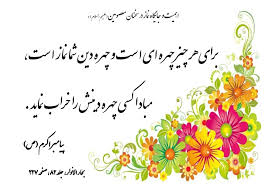 اهمیت و جایگاه نماز در سخنان معصومین (علیهم السلام)
برای هر چیز چهره ای است و چهره دین شما نماز است،
مبادا کسی چهره دینش را خراب نماید.
پیامبر اکرم (ص)
بحار الانوار، جلد ۸۲، صفحه ۲۲۷